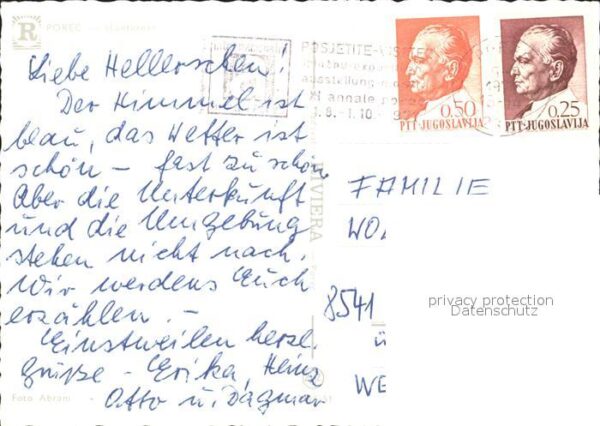 R
POREC
Liebe Hellerschen!
Der Himmel ist
blau, das Wetter ist
schön - fast zu schön
Aber die Unterkunft
und die Umgebung
stehen nicht nach.
Wir werdens Euch
erzählen. -
Einstweilen herzl.
Grüße - Erika, Heinz
Otto u. Dagmar
Foto Abram
RIVIERA
POSJETITE-VISITE
XI annale
1.8.-1.10.
0.50
PTT-JUGOSLAVIJA
0.25
PTT-JUGOSLAVIJA
FAMILIE
WO
8541
ü
WE
privacy protection
Datenschutz